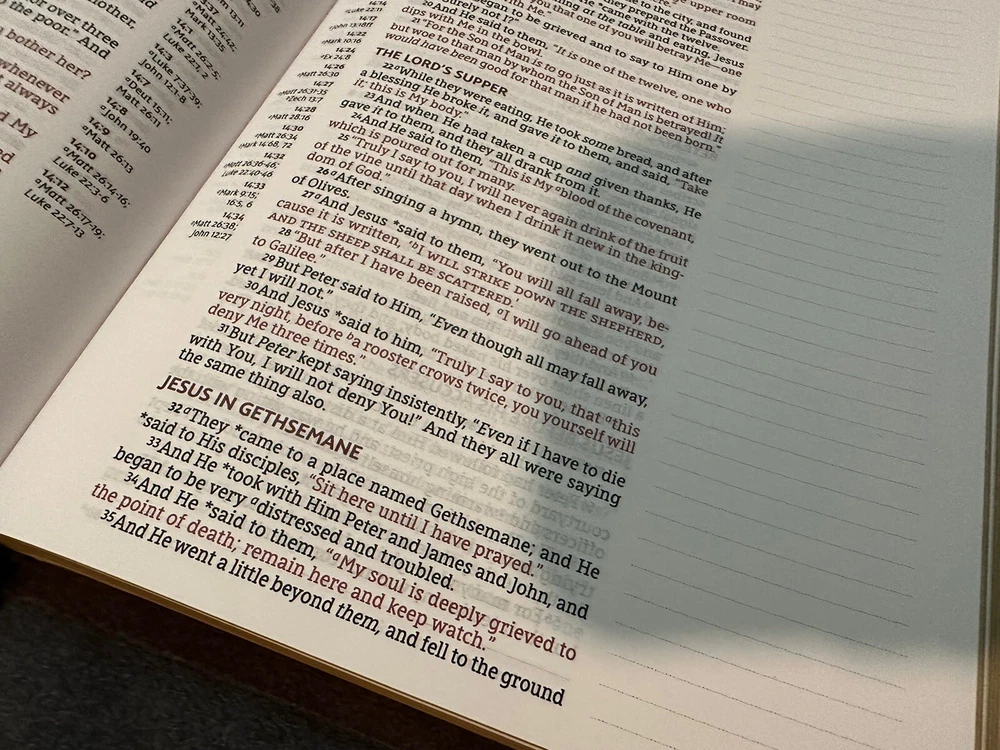 not over three
the poor." And
bother her?
whenever
always
My
14:1
Luke 22:1, 2
14:3
Luke 7:37-39;
John 12:1-8
14:7
Deut 15:11;
Matt 26:11;
14:8
John 19:40
14:9
aMatt 26:13
14:10
aMatt 26:14-16;
Luke 22:3-6
14:12
aMatt 26:17-19;
Luke 22:7-13
14:17
14:22
aMark 10:16
14:24
aEx 24:8
14:26
aMatt 26:30
14:27
aMatt 26:31-35
bZech 13:7
14:28
aMatt 28:16
14:30
aMatt 26:34
bMark 14:68, 72
14:32
aMatt 26:36-46;
Luke 22:40-46
14:33
aMark 9:15;
16:5, 6
14:34
aMatt 26:38;
John 12:27
upper room
to the city, and found
they prepared the Passover
*came with the
the table and eating, Jesus
you that one of you will betray Me—one
began to be grieved and to say to Him one by
"Surely not I?"
20And He said to them, "It is one of the twelve, one who
dips with Me in the bowl.
21"For the Son of Man is to go just as it is written of Him;
but woe to that man by whom the Son of Man is betrayed! It
would have been good for that man if he had not been born."
THE LORD'S SUPPER
22aWhile they were eating, He took some bread, and after
a blessing He broke it, and gave it to them, and said, "Take
it; this is My body."
23And when He had taken a cup and given thanks, He
gave it to them, and they all drank from it.
24And He said to them, "This is My ablood of the covenant,
which is poured out for many.
25"Truly I say to you, I will never again drink of the fruit
of the vine until that day when I drink it new in the king-
dom of God."
26aAfter singing a hymn, they went out to the Mount
of Olives.
27aAnd Jesus *said to them, "You will all fall away, be-
cause it is written, 'bI WILL STRIKE DOWN THE SHEPHERD,
AND THE SHEEP SHALL BE SCATTERED.'
28"But after I have been raised, aI will go ahead of you
to Galilee."
29But Peter said to Him, "Even though all may fall away,
yet I will not."
30And Jesus *said to him, "Truly I say to you, that athis
very night, before ba rooster crows twice, you yourself will
deny Me three times."
31But Peter kept saying insistently, "Even if I have to die
with You, I will not deny You!" And they all were saying
the same thing also.
JESUS IN GETHSEMANE
32aThey *came to a place named Gethsemane; and He
*said to His disciples, "Sit here until I have prayed."
33And He *took with Him Peter and James and John, and
began to be very adistressed and troubled.
34And He *said to them, "aMy soul is deeply grieved to
the point of death; remain here and keep watch."
35And He went a little beyond them, and fell to the ground